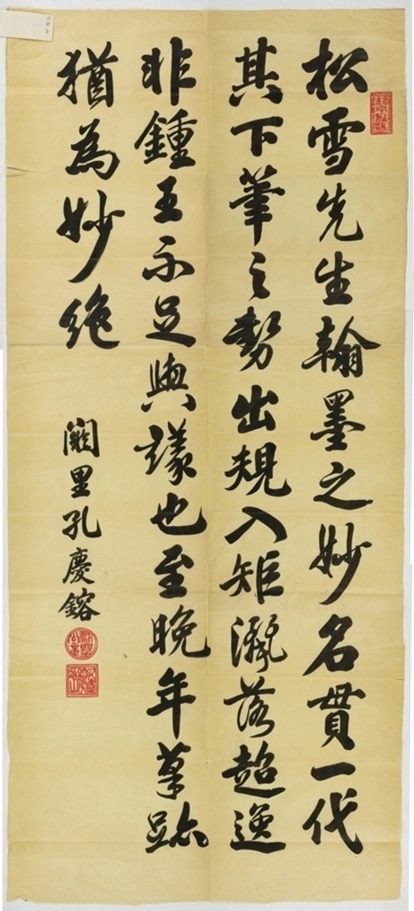 松雪先生翰墨之妙名貫一代
其下筆之勢出規入矩瀟落超逸
非鍾王不足與議也至晚年筆跡
猶為妙絶
闕里孔慶鎔